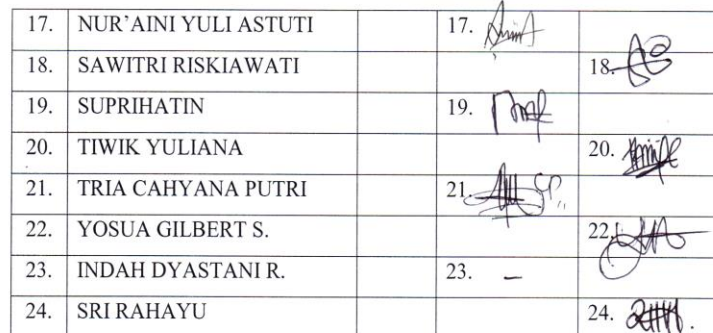 17. NUR'AINI YULI ASTUTI 17.
18. SAWITRI RISKIAWATI 18.
19. SUPRIHATIN 19.
20. TIWIK YULIANA 20.
21. TRIA CAHYANA PUTRI 21.
22. YOSUA GILBERT S. 22.
23. INDAH DYASTANI R. 23. –
24. SRI RAHAYU 24.